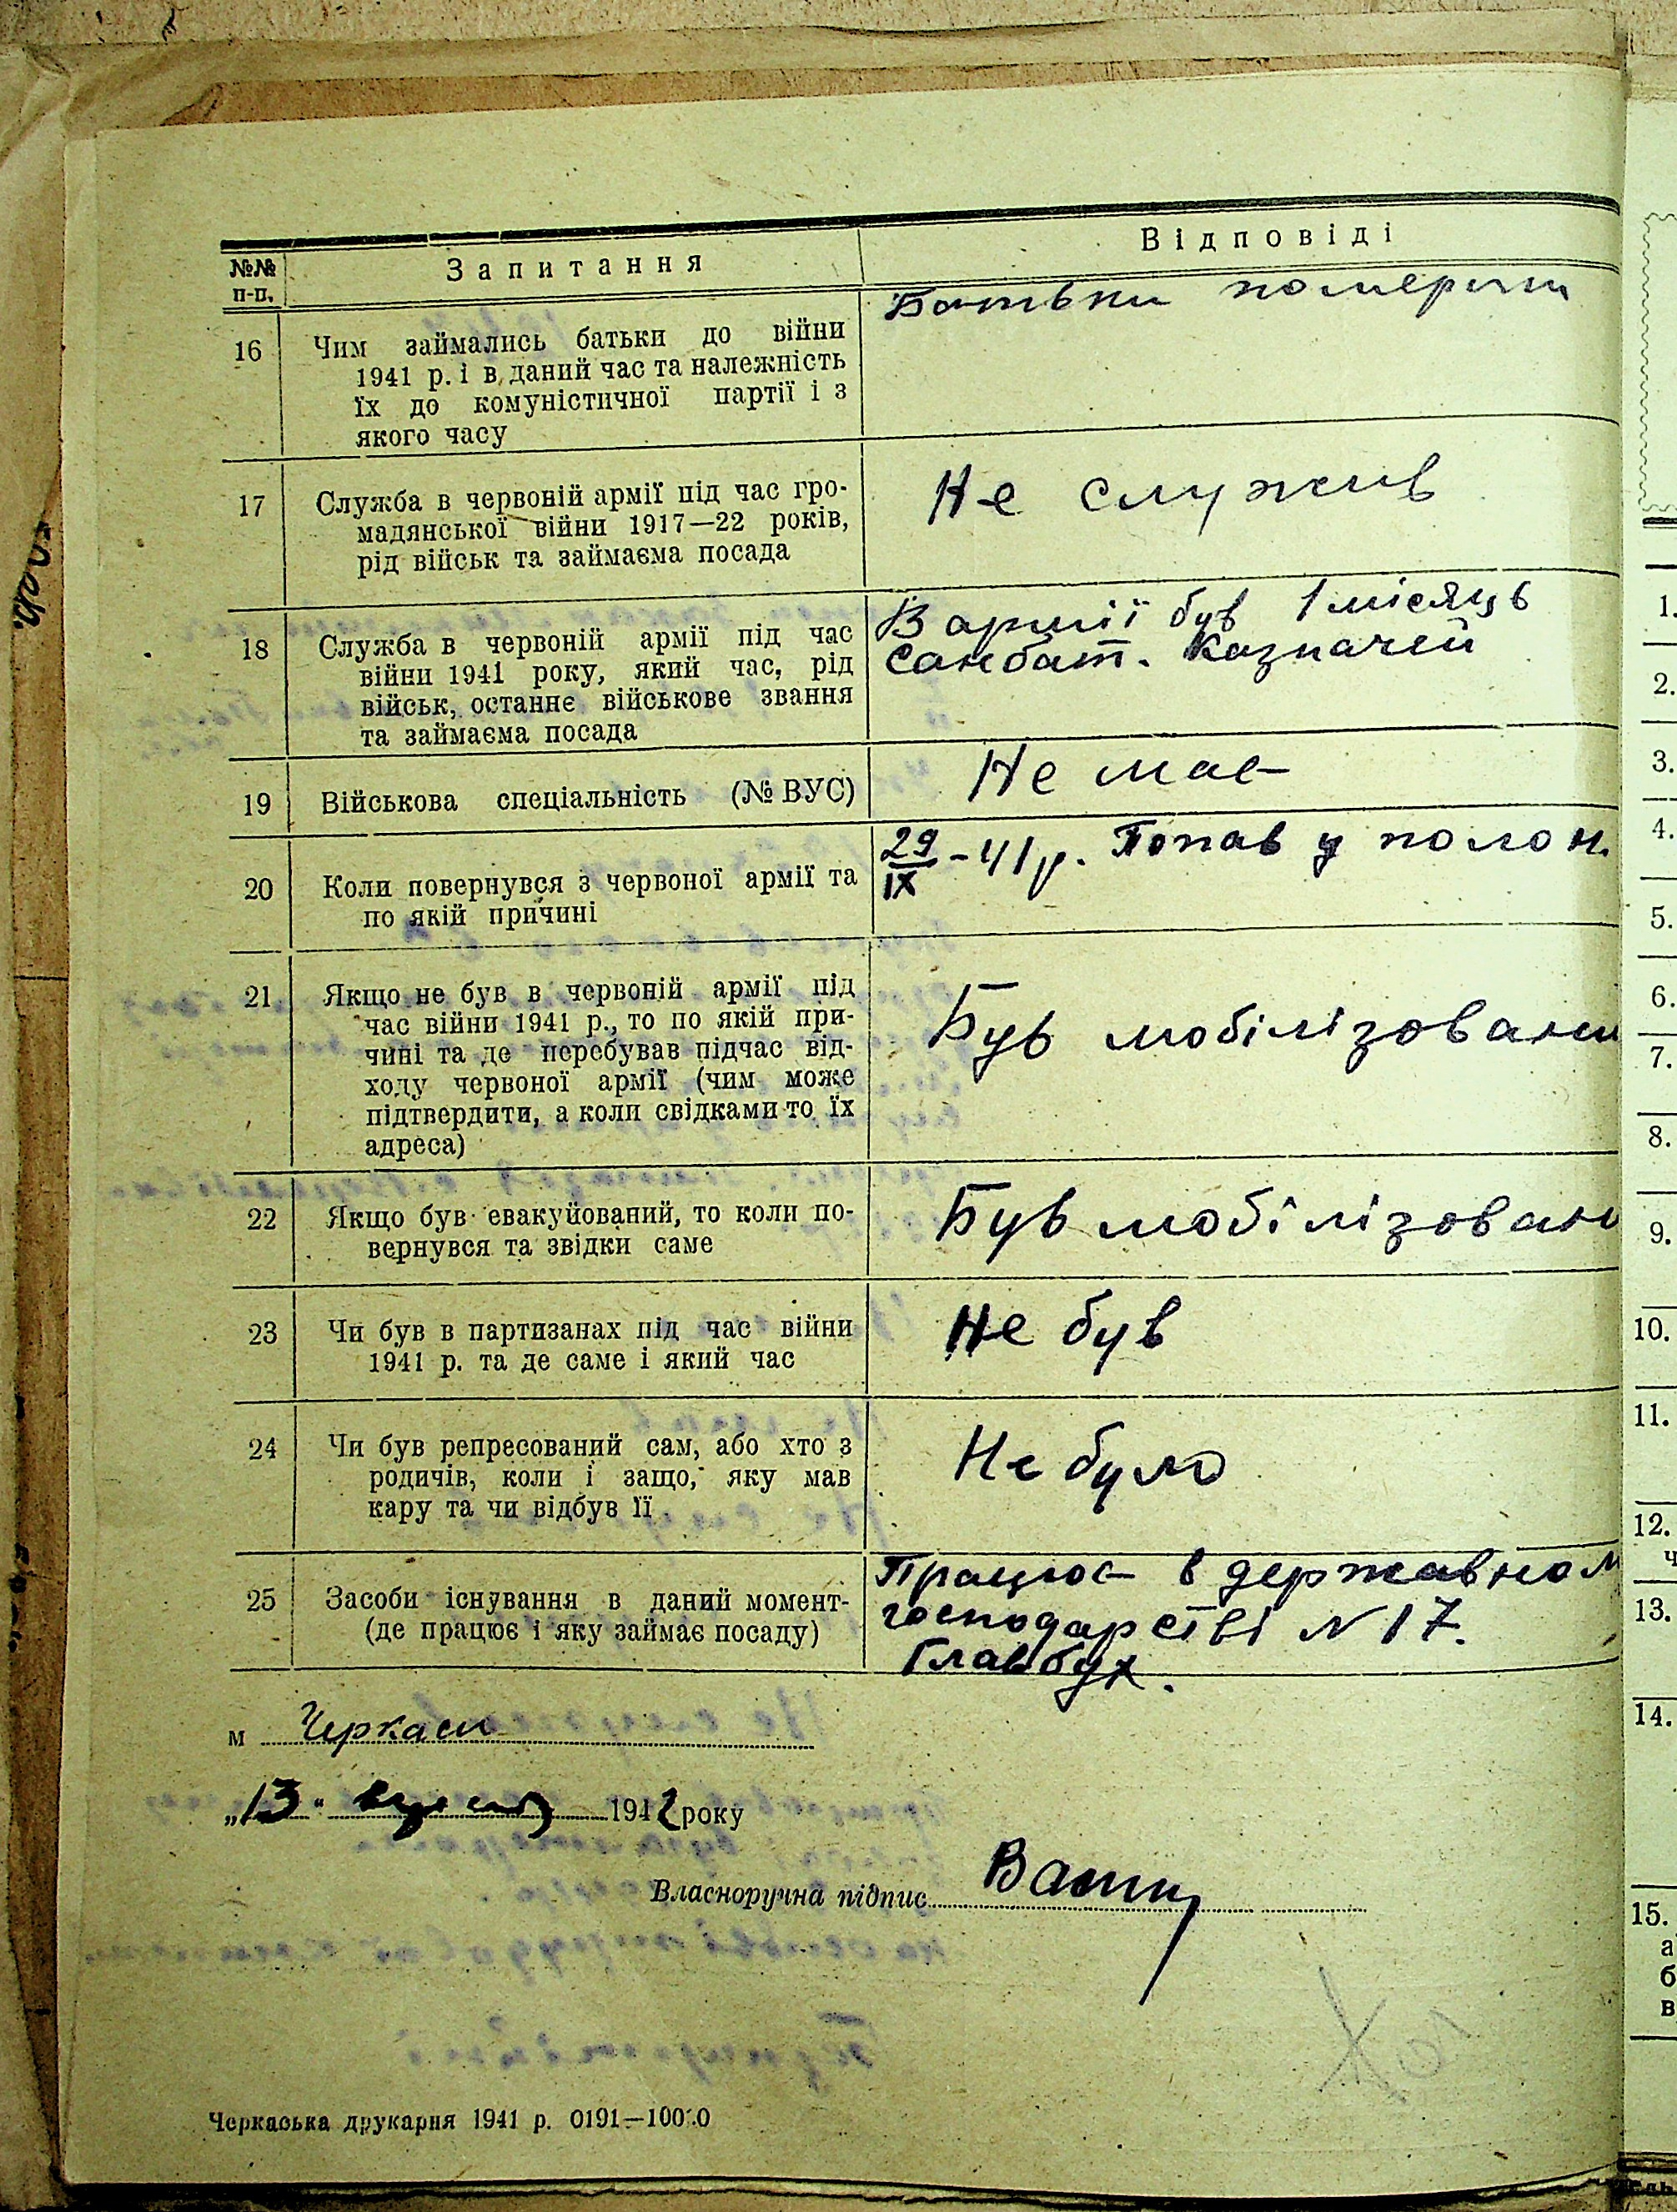 №№ п-п.
Запитання
Відповіді
16
Чим займались батьки до війни
1941 р. і в даний час та належність
їх до комуністичної партії і з
якого часу
Батьки померли
17
Служба в червоній армії під час гро-
мадянської війни 1917—22 років,
рід військ та займаєма посада
Не служив
18
Служба в червоній армії під час
війни 1941 року, який час, рід
військ, останнє військове звання
та займаєма посада
В армії був 1 місяць
Санбат. Казначей
19
Військова спеціальність (№ ВУС)
Не має
20
Коли повернувся з червоної армії та
по якій причині
29/IX - 41 р. Попав у полон.
21
Якщо не був в червоній армії під
час війни 1941 р., то по якій при-
чині та де перебував підчас від-
ходу червоної армії (чим може
підтвердити, а коли свідками то їх
адреса)
Був мобілізовани
22
Якщо був евакуйований, то коли по-
вернувся та звідки саме
Був мобілізован
23
Чи був в партизанах під час війни
1941 р. та де саме і який час
Не був
24
Чи був репресований сам, або хто з
родичів, коли і защо, яку мав
кару та чи відбув її
Не було
25
Засоби існування в даний момент-
(де працює і яку займає посаду)
Працює в державном
господарстві N 17.
Главбух.
м Черкаси
„13" 1942 року
Власноручна підпис
Черкаська друкарня 1941 р. 0191—100.0
1.
2.
3.
4.
5.
6.
7.
8.
9.
10.
11.
12.
ч
13.
14.
15.
а
б
в